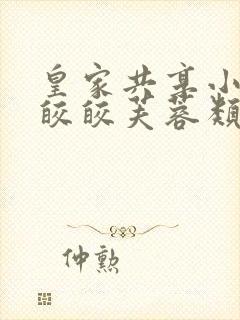 皇家共享小
皎皎芙蓉类
仲勲